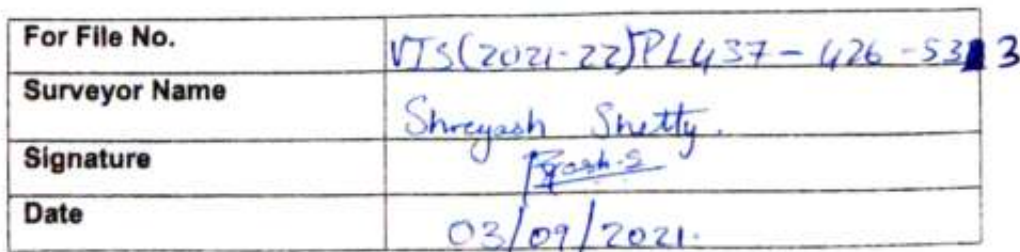 For File No. VIS(2021-22)PL437-426-53 3
Surveyor Name Shreyash Shetty.
Signature
Date 03/09/2021.